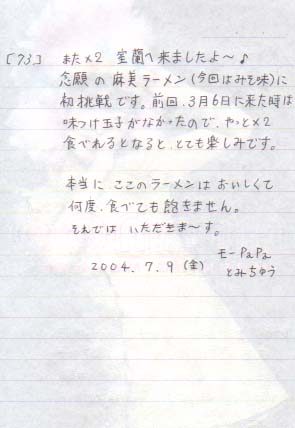 [73] また×2 室蘭へ来ましたよ～♪
念願の麻美ラーメン(今回はみそ味)に
初挑戦です。前回、3月6日に来た時は
味つけ玉子がなかったので、やっと×2
食べれるとなると、とても楽しみです。
本当に ここのラーメンは おいしくて
何度、食べても飽きません。
それでは いただきま～す。
2004.7.9(金)
モーPaPa
とみちゅう